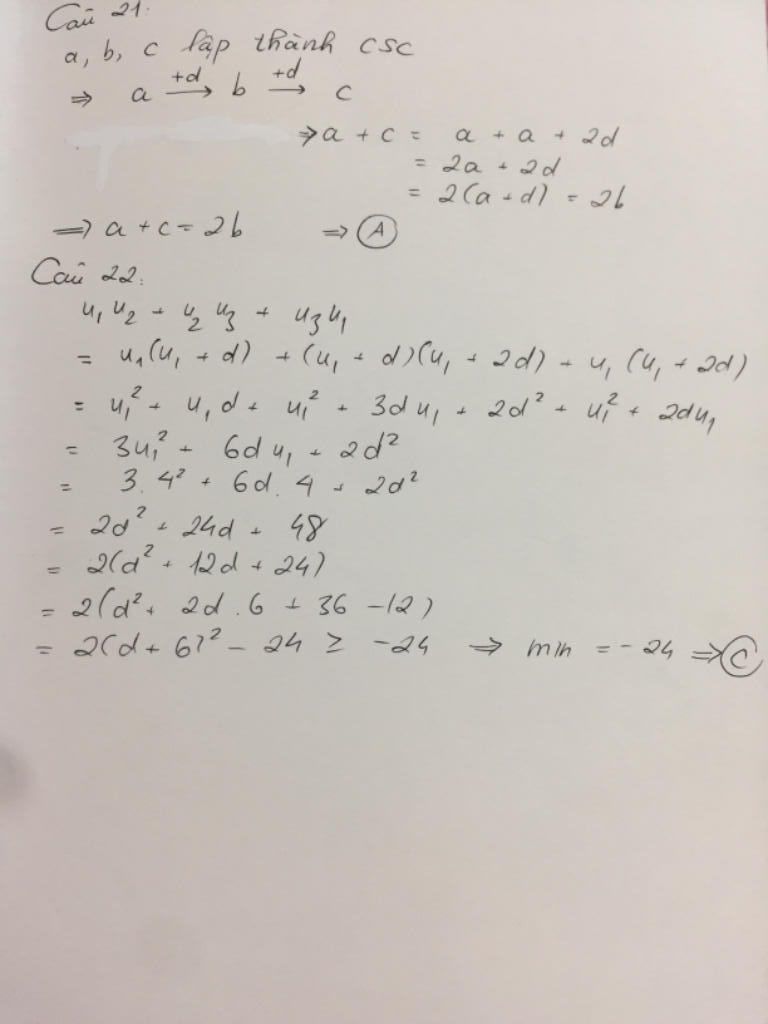 Câu 21:
a, b, c lập thành csc
⇒ a \xrightarrow{+d} b \xrightarrow{+d} c
⇒ a + c = a + a + 2d
= 2a + 2d
= 2(a + d) = 2b
⇒ a + c = 2b ⇒ Ⓐ
Câu 22:
u₁u₂ + u₂u₃ + u₃u₁
= u₁(u₁ + d) + (u₁ + d)(u₁ + 2d) + u₁(u₁ + 2d)
= u₁² + u₁d + u₁² + 3du₁ + 2d² + u₁² + 2du₁
= 3u₁² + 6du₁ + 2d²
= 3.4² + 6d.4 + 2d²
= 2d² + 24d + 48
= 2(d² + 12d + 24)
= 2(d² + 2d.6 + 36 - 12)
= 2(d + 6)² - 24 ≥ -24 ⇒ min = -24 ⇒ Ⓒ